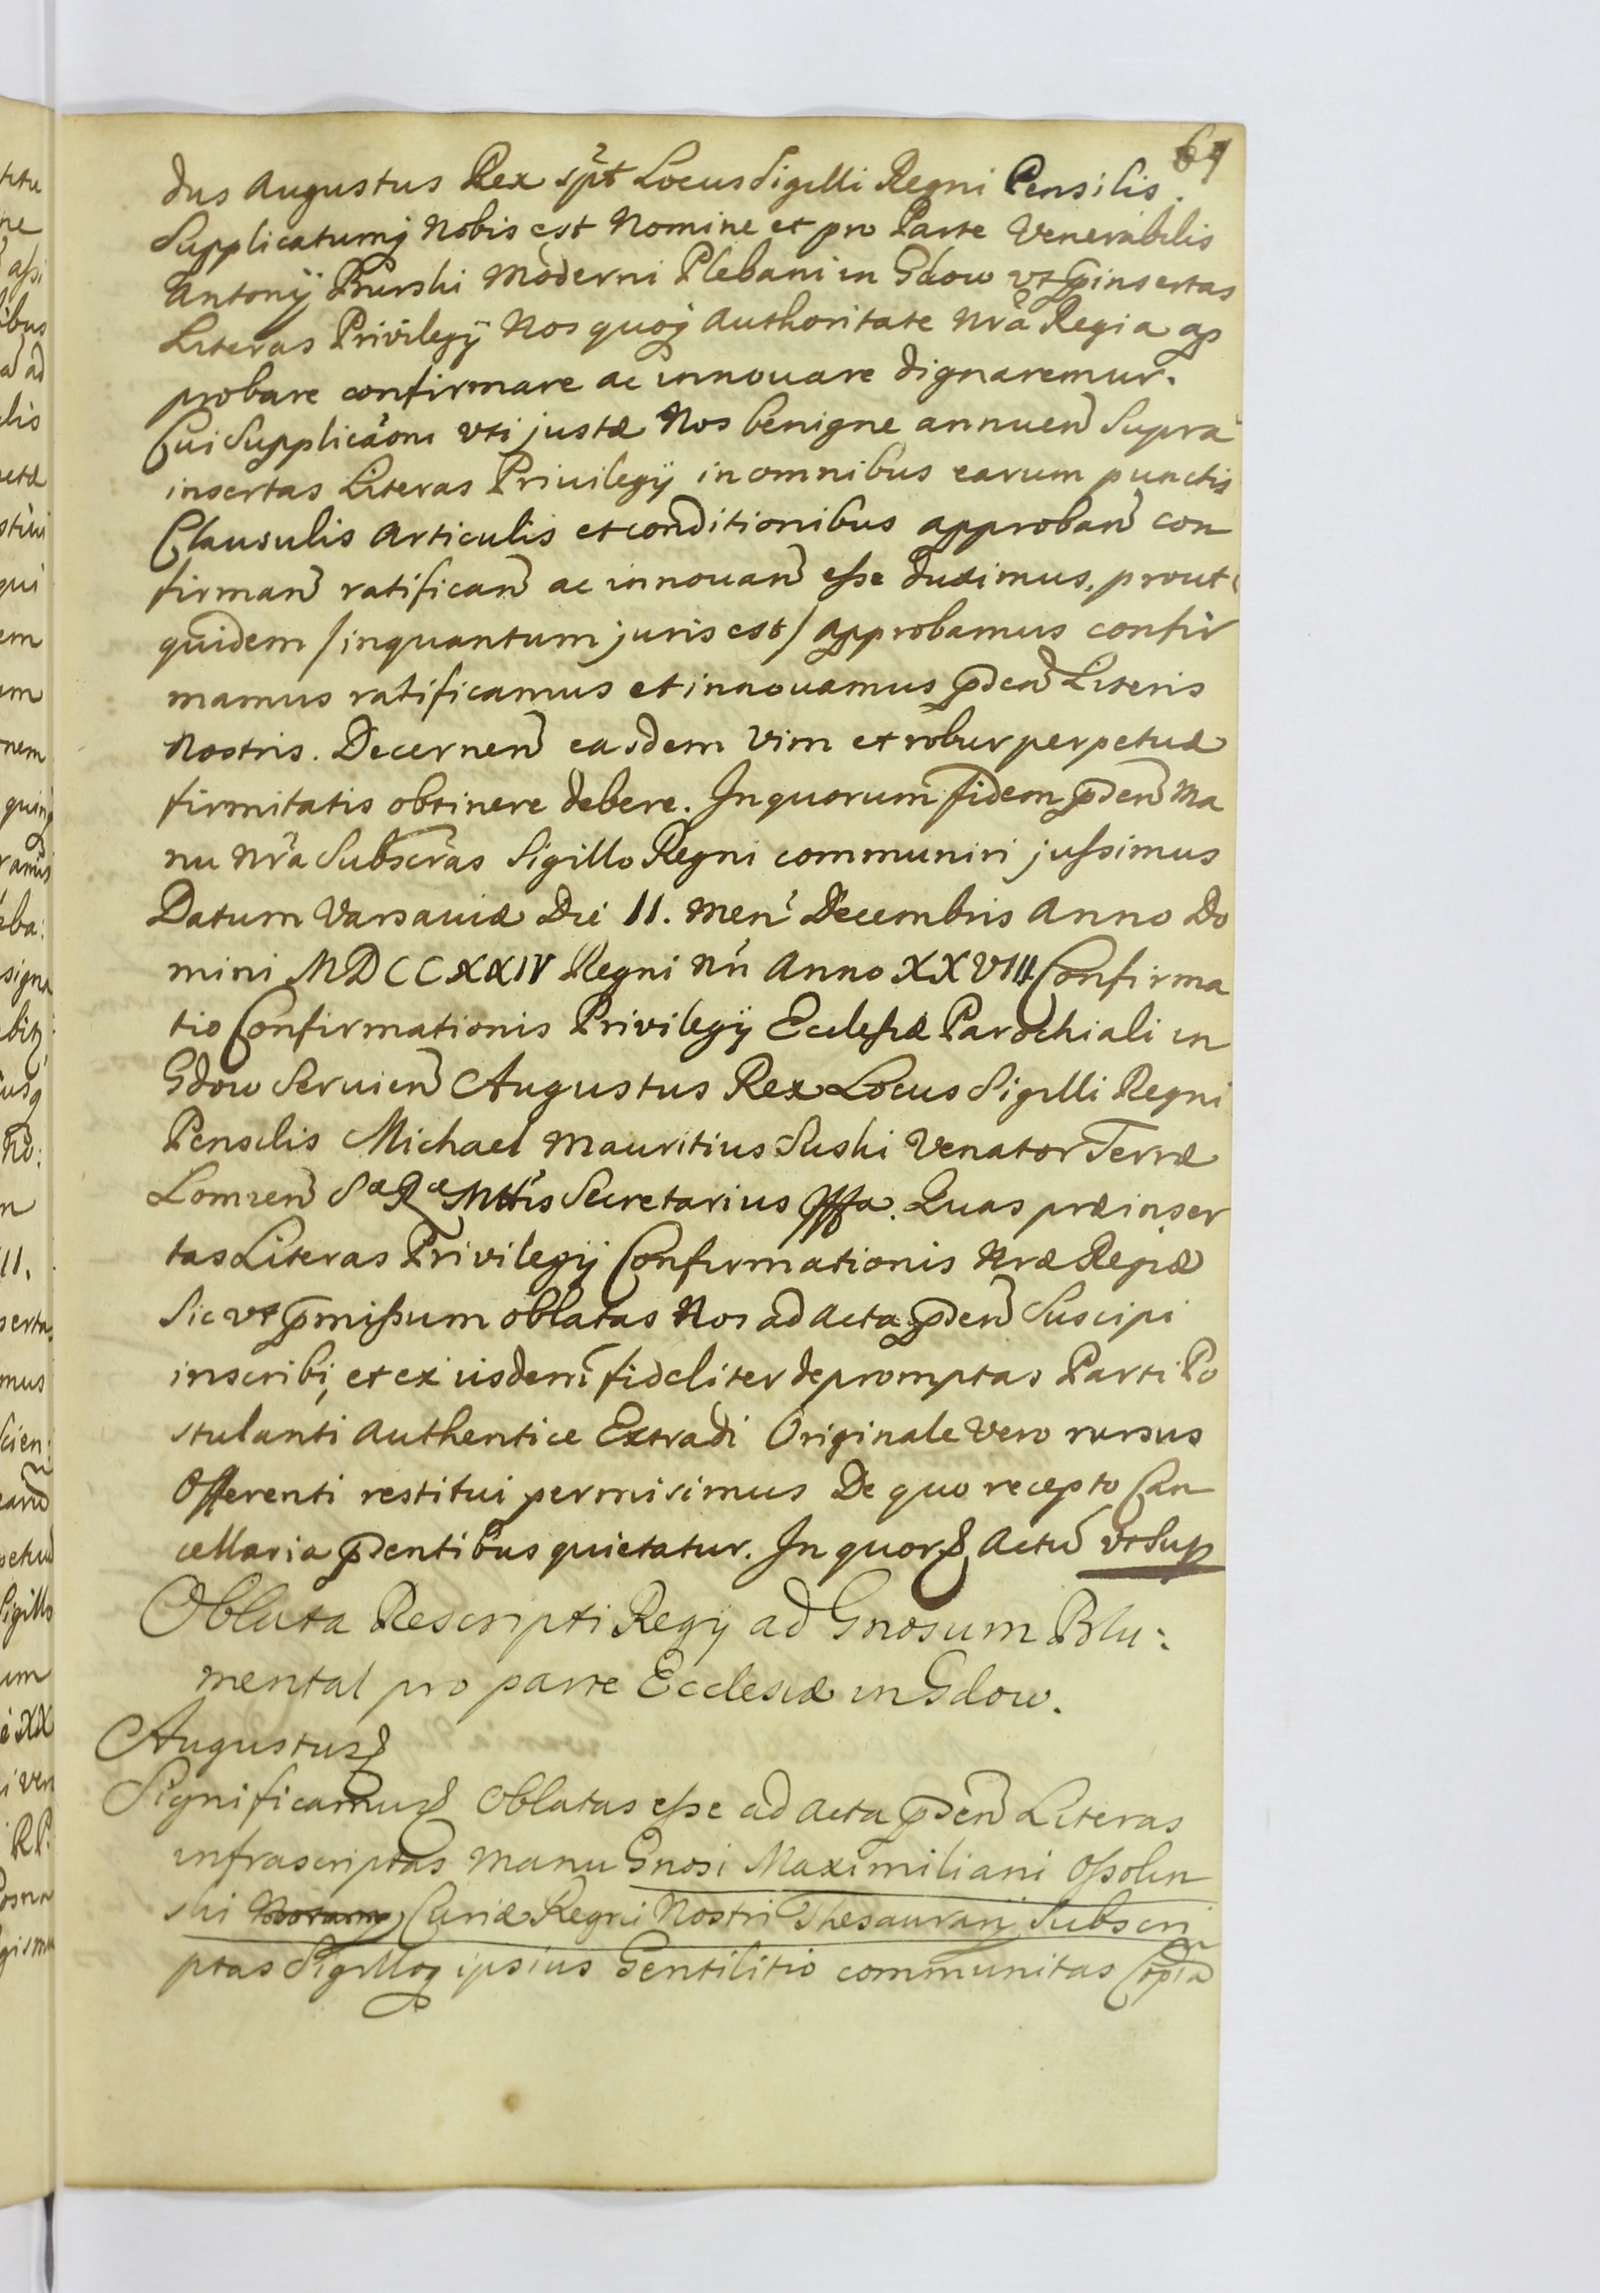 dus Augustus Rex spt Locus Sigilli Regni Pensilis.
Supplicatumq Nobis est Nomine et pro Parte Venerabilis
Antonij Burski Moderni Plebani in Gdow vt p̄insertas
Literas Privilegij Nos quoq Authoritate Nrã Regia ap
probare confirmare ac innouare dignaremur.
Cui Supplicãoni vti justæ Nos benigne annuen̄ Supra
insertas Literas Priuilegij in omnibus earum punctis
Clausulis Articulis et conditionibus approban̄ con
firman̄ ratifican̄ ac innouan̄ esse duximus, prout
quidem /inquantum juris est/ approbamus confir
mamus ratificamus et innouamus p̄den̄ Literis
Nostris. Decernen̄ easdem Vim et robur perpetuæ
firmitatis obtinere debere. In quorum fidem p̄den̄ Ma
nu Nrã Subscrãs Sigillo Regni communiri jussimus
Datum Varsauiæ Die 11. Men̄ Decembris Anno Do
mini MDCCXXIV Regni Nri Anno XXVIII Confirma
tio Confirmationis Privilegij Ecclesiæ Parochiali in
Gdow Seruien̄ Augustus Rex Locus Sigilli Regni
Pensilis Michael Mauritius Suski Venator Terræ
Lomzen̄ Sæ Ræ Mttis Secretarius Mppa. Quas præinser
tas Literas Privilegij Confirmationis Nræ Regiæ
Sic vt p̄missum oblatas Nos ad Acta p̄den̄ Suscipi
inscribi, et ex iisdem fideliter depromptas Parti Po
stulanti Authentice Extradi Originale Vero rursus
Offerenti restitui permisimus De quo recepto Can
cellaria p̄dentibus quietatur. In quor& Actu vt Sup
Oblata Rescripti Regij ad Gnosum Blu:
mental pro parte Ecclesiæ in Gdow.
Augustus&
Significamus& Oblatas esse ad Acta p̄den̄ Literas
infrascriptas Manu Gnosi Maximiliani Ossolin
ski Curiæ Regni Nostri Thesaurarij Subscri
ptas Sigilloq ipsius Gentilitio communitas